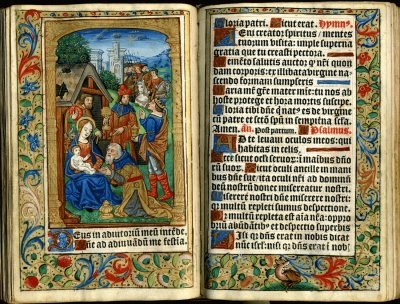 Deus in adiutoriū meū intēde.
Dñe ad adiuvādū me festīa.
Gloria patri. Sicut erat. Hymn⁹.
Veni creator spiritus / mentes
tuorum visita: imple superna
gratia que tu creasti pectora.
Memēto salutis auctor q nr̄i quon
dam corporis: ex illibata virgine na
scendo formam sumpseris
Maria mr̄ gr̄e mater mīe: tu nos ab
hoste protege et hora mortis suscipe.
Gloria tibi dñe qui nat⁹ es de virgine
cu patre et sctō spū in sempitna secla.
Amen. añ. Post partum. Psalmus.
AD te levavi oculos meos: qui
habitas in celis.
Ecce sicut ocli servor: ī maibus dñō
rū suor. Sicut oculi ancille in mani
bus dñe sue: ita oculi nr̄i ad dominū
deū nostrū donec misereatur nostri.
Miserere nostri dñe miserere nostri:
quia multū repleti sumus despectione.
Quia multū repleta est aīa nr̄a: oppro
briū abūdātib⁹ et despectio superbis
Nisi qz dñs erat in nobis dicat
nūc isrl: nisi qz dñs erat ī nobis